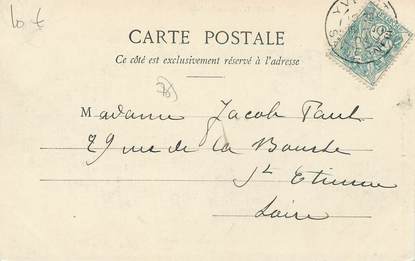 10 €
CARTE POSTALE
Ce côté est exclusivement réservé à l'adresse
78
Madame Jacob Paul
29 rue de la Bourse
St Etienne
Loire